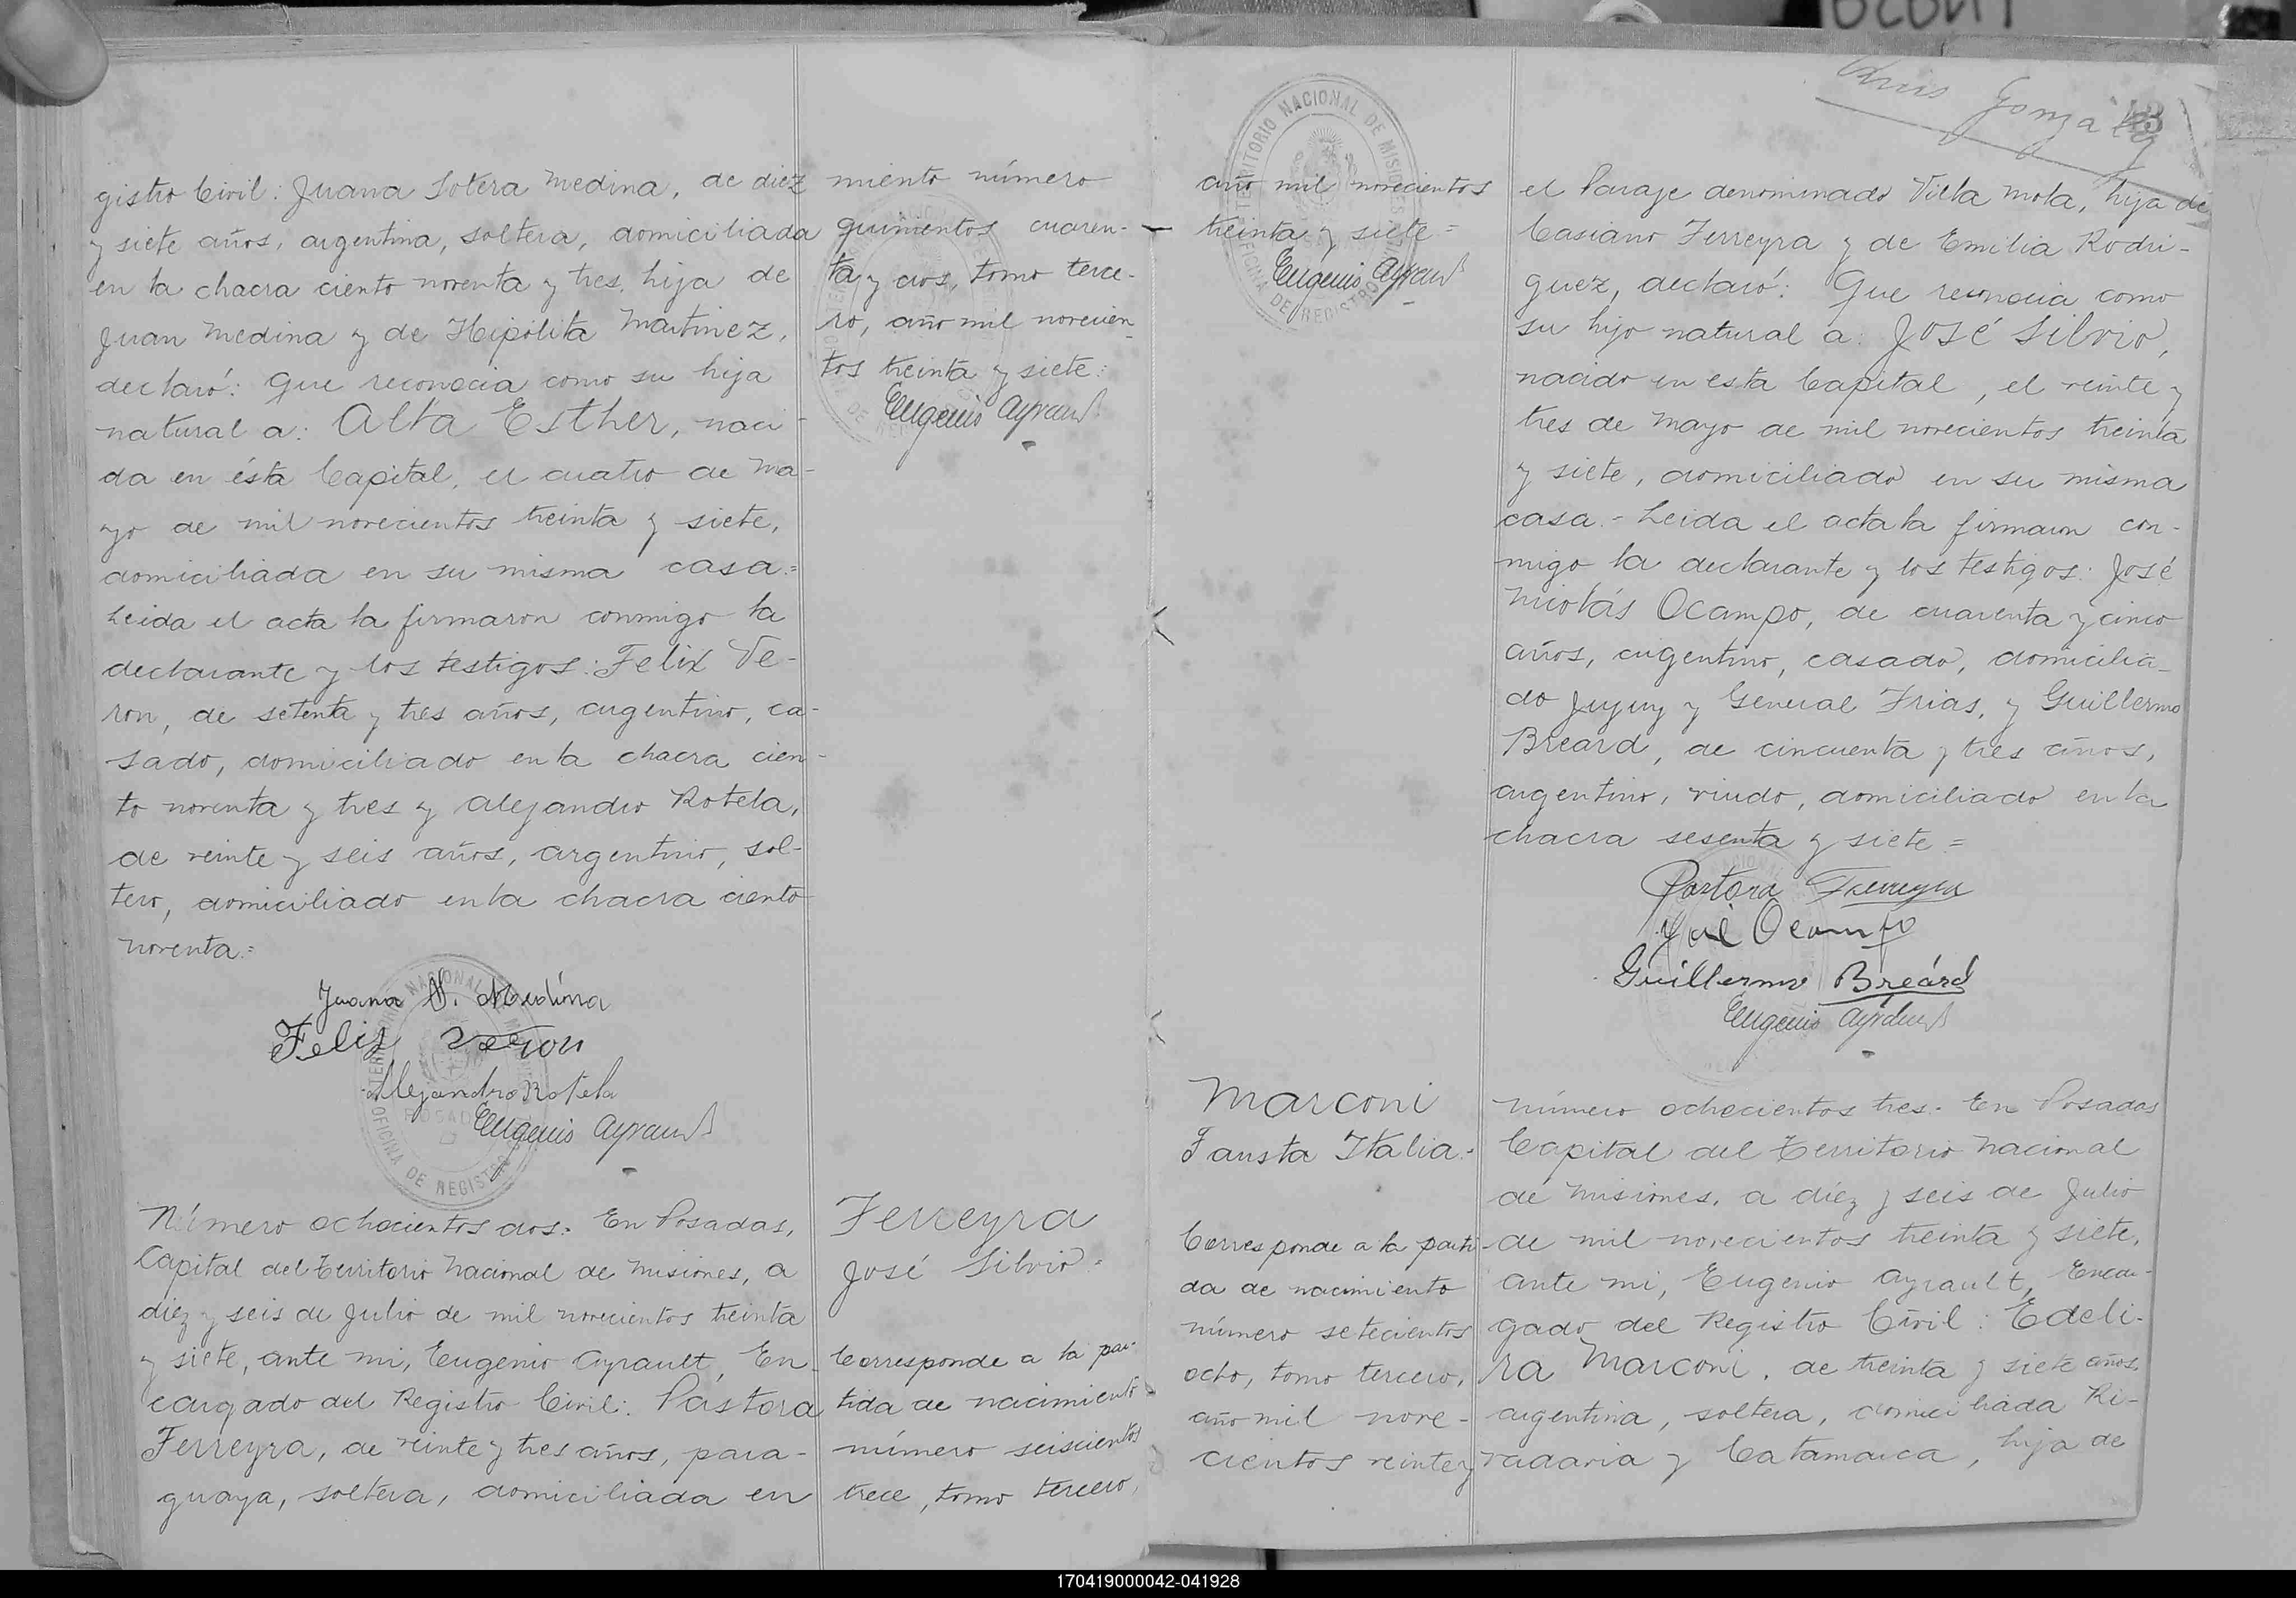 gistro Civil: Juana Sotera Medina, de diez
y siete años, argentina, soltera, domiciliada
en la chacra ciento noventa y tres, hija de
Juan Medina y de Hipólita Martinez,
declaró: Que reconocia como su hija
natural a: Alba Esther, naci-
da en ésta Capital, el cuatro de Ma-
yo de mil novecientos treinta y siete,
domiciliada en su misma casa.=
Leida el acta la firmaron conmigo la
declarante y los testigos: Felix Ve-
ron, de setenta y tres años, argentino, ca-
sado, domiciliado en la chacra cien-
to noventa y tres y Alejandro Rotela,
de veinte y seis años, argentino, sol-
tero, domiciliado en la chacra ciento
noventa.=
Juana S. Medina
Felix Veron
Alejandro Rotela
Eugenio Ayrault
Número ochocientos dos.= En Posadas,
Capital del Territorio Nacional de Misiones, a
diez y seis de Julio de mil novecientos treinta
y siete, ante mi, Eugenio Ayrault, En-
cargado del Registro Civil: Pastora
Ferreyra, de veinte y tres años, para-
guaya, soltera, domiciliada en
miento número
quinientos cuaren-
ta y dos, tomo terce-
ro, año mil novecien-
tos treinta y siete.=
Eugenio Ayrault
Ferreyra
José Silvio.=
Corresponde a la par-
tida de nacimiento
número seiscientos
trece, tomo tercero,
TERRITORIO NACIONAL DE MISIONES
OFICINA DE REGISTRO CIVIL
año mil novecientos
treinta y siete=
Eugenio Ayrault
Marconi
Fausta Italia.=
Corresponde a la parti-
da de nacimiento
número setecientos
ocho, tomo tercero,
año mil nove-
cientos veinte y
Luis Gonzalez
43
el Paraje denominado Villa Mola, hija de
Casiano Ferreyra y de Emilia Rodri-
guez, declaró: Que reconocia como
su hijo natural a: José Silvio,
nacido en esta Capital, el veinte y
tres de Mayo de mil novecientos treinta
y siete, domiciliado en su misma
casa.= Leida el acta la firmaron con-
migo la declarante y los testigos: José
Nicolás Ocampo, de cuarenta y cinco
años, argentino, casado, domicilia-
do Jujuy y General Frias, y Guillermo
Breard, de cincuenta y tres años,
argentino, viudo, domiciliado en la
chacra sesenta y siete=
Pastora Ferreyra
José Ocampo
Guillermo Breárd
Eugenio Ayrault
Número ochocientos tres.= En Posadas
Capital del Territorio Nacional
de Misiones, a diez y seis de Julio
de mil novecientos treinta y siete,
ante mi, Eugenio Ayrault, Encar-
gado del Registro Civil: Edeli-
ra Marconi, de treinta y siete años,
argentina, soltera, domiciliada Ri-
vadavia y Catamarca, hija de
170419000042-041928